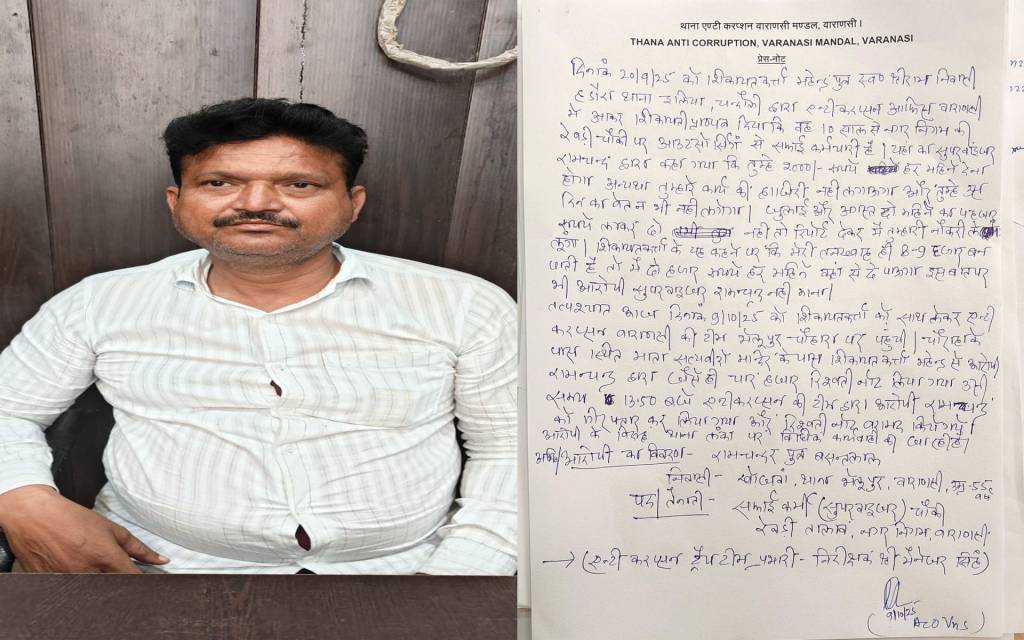 थाना एण्टी करप्शन वाराणसी मण्डल, वाराणसी।
THANA ANTI CORRUPTION, VARANASI MANDAL, VARANASI
प्रेस-नोट
दिनांक 20/9/25 को शिकायतकर्ता महेन्द्र पुत्र स्व०
थाना इलिया, चन्दौली द्वारा एन्टी करप्सन आफिस वाराणसी
में आकर शिकायती प्रार्थना पत्र दिया कि वह 10 साल से नगर निगम की
चौकी पर आउटसोर्सिंग से सफाई कर्मचारी है। यहां का सुपरवाइजर
रामचन्द्र द्वारा कहा गया कि तुम्हे 2000/- रूपये हर महिने देना
होगा अन्यथा तुम्हारे कार्य की हाजीरी नही लगाऊंगा और तुम्हे उस
दिन का वेतन भी नही लगेगा। जुलाई और अगस्त दो महिने का
रूपये लाकर दो नही तो रिपोर्ट देकर मैं तुम्हारी नौकरी
लूंगा। शिकायतकर्ता के यह कहने पर कि मेरी तनख्वाह ही 8-9 हजार बन
पाती है तो मैं दो हजार रूपये हर महिने कहां से दे पाऊंगा इस बात पर
भी आरोपी सुपरवाइजर रामचन्द्र नही माना।
तत्पश्चात आज दिनांक 9/10/25 को शिकायतकर्ता को साथ लेकर एन्टी
करप्सन वाराणसी की टीम भेलूपुर चौराहा पर पहुंची। चौराहा के
पास स्थित माता मन्दिर के पास शिकायतकर्ता महेन्द्र से आरोपी
रामचन्द्र द्वारा जैसे ही चार हजार रिश्वती नोट लिया गया उसी
समय 13:50 बजे एन्टीकरप्सन की टीम द्वारा आरोपी रामचन्द्र
को गिरफ्तार कर लिया गया और रिश्वती नोट बरामद किया गया।
आरोपी के विरूद्ध थाना लंका पर विधिक कार्यवाही की जा रही है।
आरोपी का विवरण- रामचन्दर पुत्र बसन्तलाल
निवासी- खोजवां, थाना भेलूपुर, वाराणसी, उम्र-55 वर्ष
पद/तैनाती- सफाई कर्मी (सुपरवाइजर) चौकी
रेवड़ी तालाब, नगर निगम, वाराणसी
→ (एन्टी करप्सन ट्रैप टीम प्रभारी- निरीक्षक श्री मैनेजर सिंह)
9/10/25
(ACO VNS)